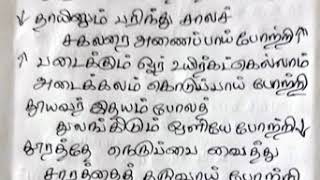 ↓ தாயினும் பரிந்து சாலச்
சகலரை அணைப்பாய் போற்றி ↑
↑ படைக்கும் ஓர் உயிர்கட்கெல்லாம்
அடைக்கலம் கொடுப்பாய் போற்றி
தூயவர் இதயம் போலத்
துலங்கிடும் ஒளியே போற்றி ↓
தூரத்தே நெருப்பை வைத்து
சாரத்தைத் தருவாய் போற்றி